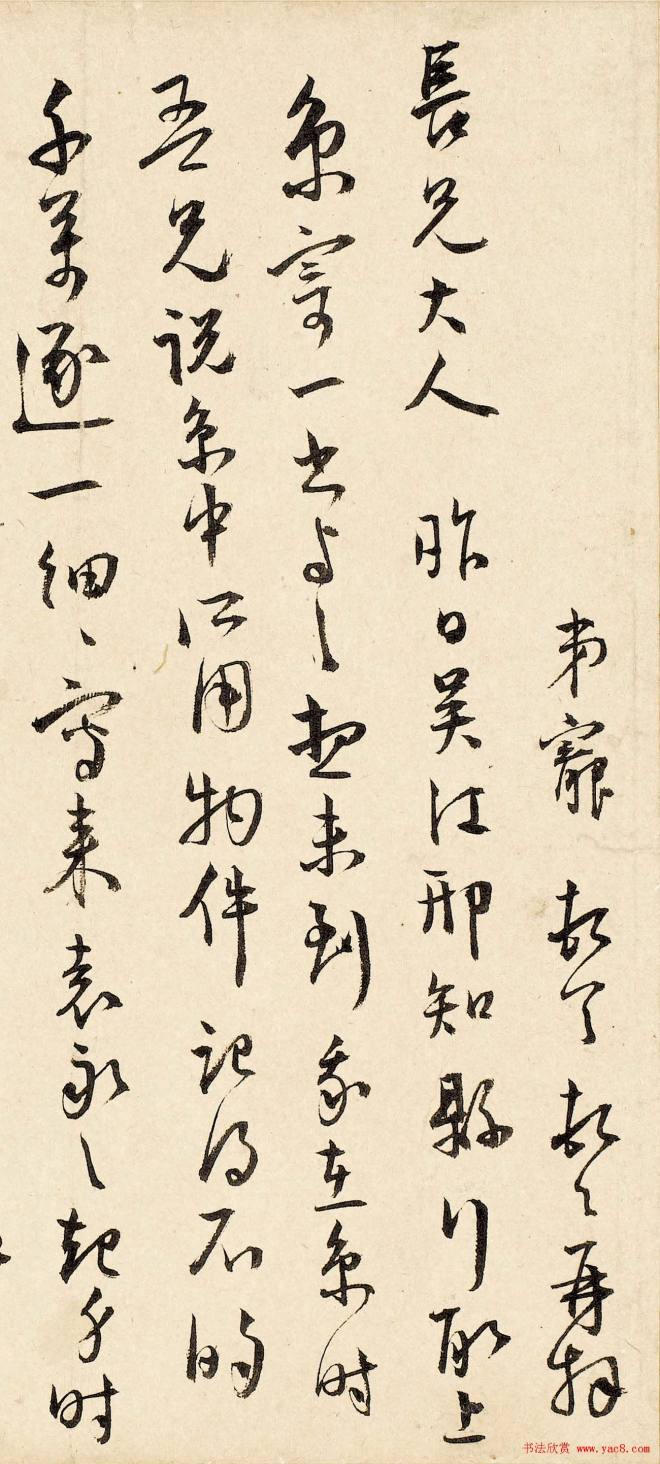 弟寵 頓首頓首再拜
長兄大人 昨日吴江邢知縣行取上
京寄一書与之想未到我在京时
吾兄说京中所用物件记得不的
千萬逐一细々寫来袁永之起身时
书法欣赏 www.yac8.com